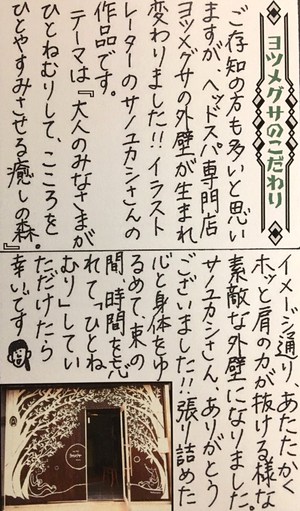 ヨツメグサのこだわり
ご存知の方も多いと思い
ますが、ヘッドスパ専門店
ヨツメグサの外壁が生まれ
変わりました!!イラスト
レーターのサノユカシさんの
作品です。
テーマは『大人のみなさまが
ひとねむりして、こころを
ひとやすみさせる癒しの森。』
イメージ通り、あたたかく
ホッと肩の力が抜ける様な
素敵な外壁になりました。
サノユカシさん、ありがとう
ございました!!張り詰めた
心と身体をゆ
るめて、束の
間、時間を忘
れて、ひとね
むり♪してい
ただけたら
幸いです